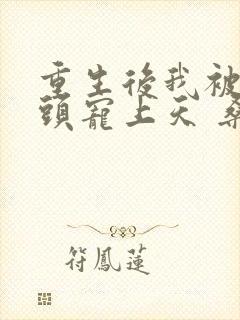 重生後我被
頭寵上天
符鳳蓮